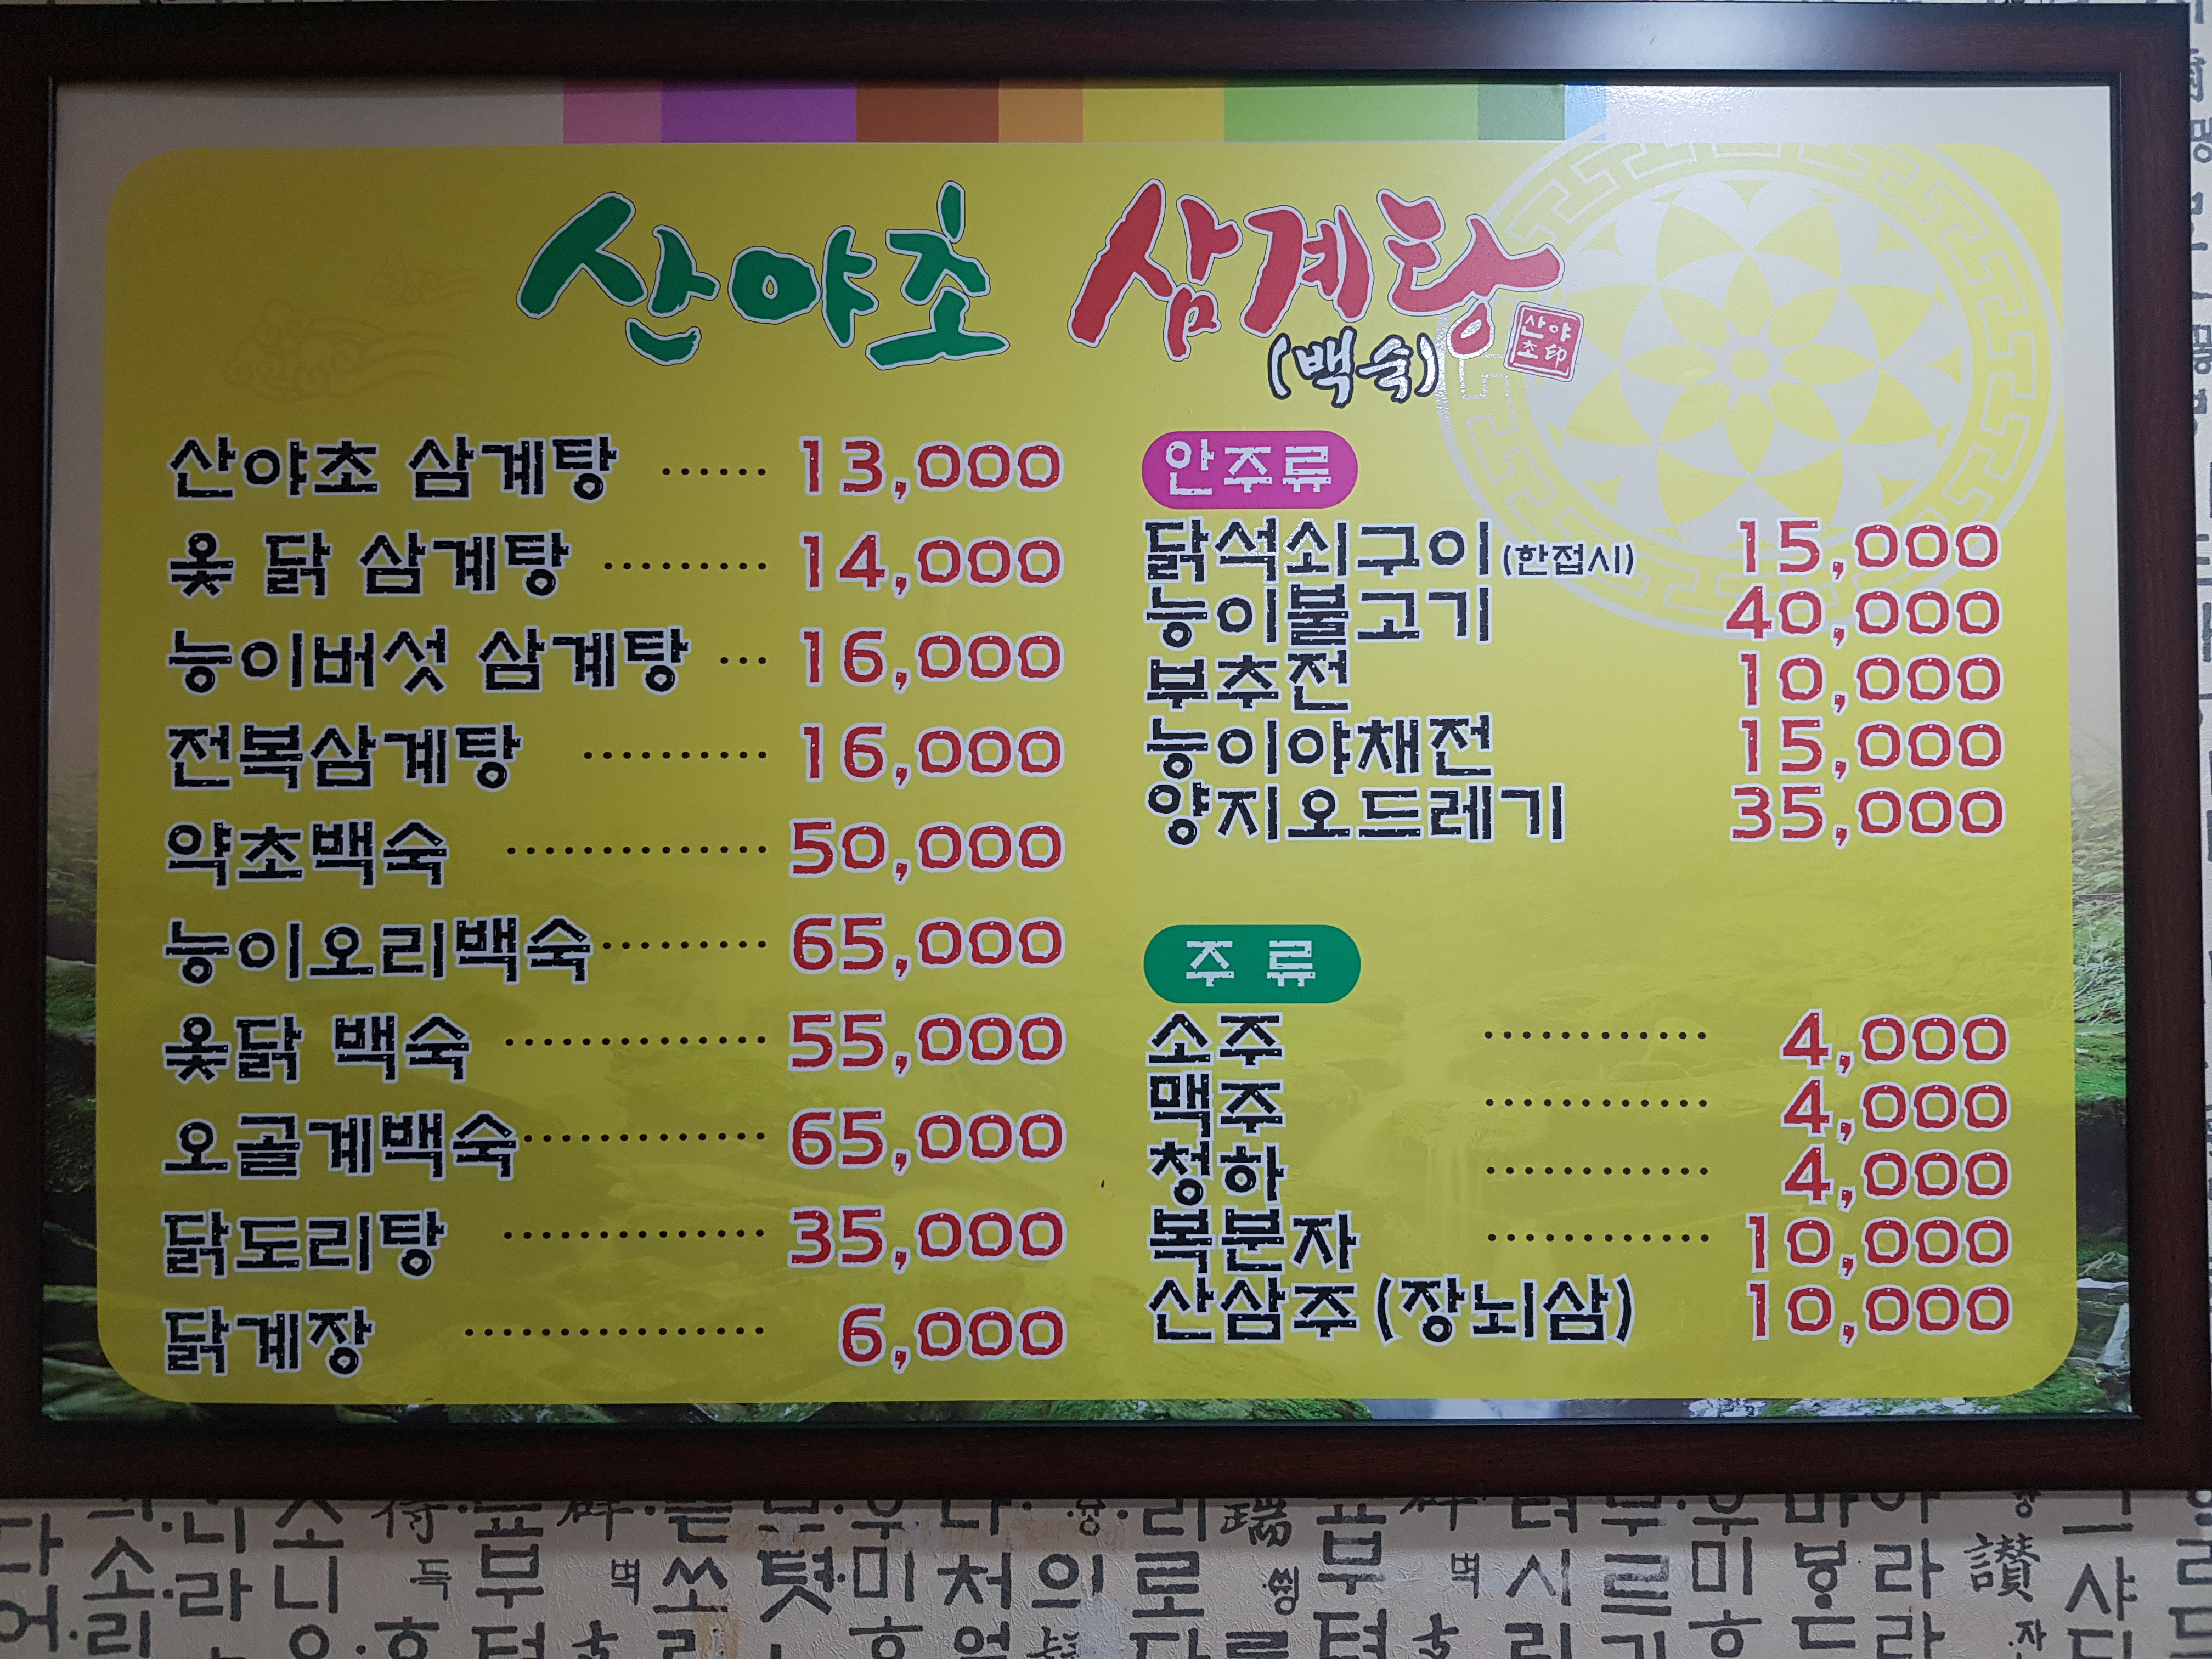 산야초 삼계탕
(백숙)
산야
초印
산야초 삼계탕 ...... 13,000
옻 닭 삼계탕 ......... 14,000
능이버섯 삼계탕 ... 16,000
전복삼계탕 .......... 16,000
약초백숙 .............. 50,000
능이오리백숙 ......... 65,000
옻닭 백숙 .............. 55,000
오골계백숙 ............. 65,000
닭도리탕 .............. 35,000
닭계장 ................ 6,000
안주류
닭석쇠구이(한접시) 15,000
능이불고기 40,000
부추전 10,000
능이야채전 15,000
양지오드레기 35,000
주 류
소주 ............ 4,000
맥주 ............ 4,000
청하 ............ 4,000
복분자 ............ 10,000
산삼주(장뇌삼) 10,000